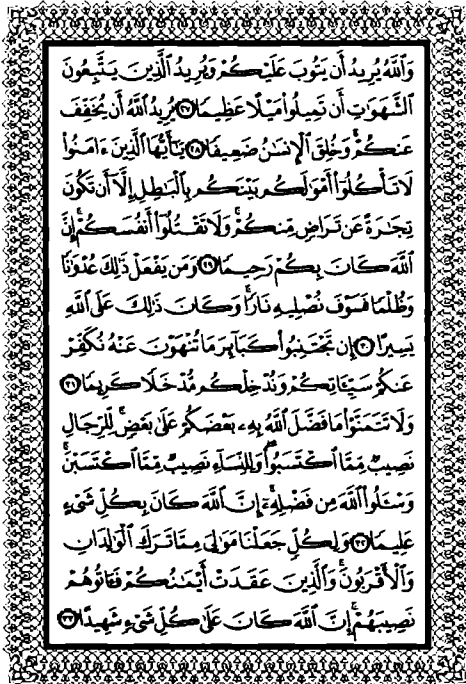 وَٱللَّهُ يُرِيدُ أَن يَتُوبَ عَلَيْكُمْ وَيُرِيدُ ٱلَّذِينَ يَتَّبِعُونَ
ٱلشَّهَوَٰتِ أَن تَمِيلُوا۟ مَيْلًا عَظِيمًا ٢٧ يُرِيدُ ٱللَّهُ أَن يُخَفِّفَ
عَنكُمْ ۚ وَخُلِقَ ٱلْإِنسَٰنُ ضَعِيفًا ٢٨ يَٰٓأَيُّهَا ٱلَّذِينَ ءَامَنُوا۟
لَا تَأْكُلُوٓا۟ أَمْوَٰلَكُم بَيْنَكُم بِٱلْبَٰطِلِ إِلَّآ أَن تَكُونَ
تِجَٰرَةً عَن تَرَاضٍ مِّنكُمْ ۚ وَلَا تَقْتُلُوٓا۟ أَنفُسَكُمْ ۚ إِنَّ
ٱللَّهَ كَانَ بِكُمْ رَحِيمًا ٢٩ وَمَن يَفْعَلْ ذَٰلِكَ عُدْوَٰنًا
وَظُلْمًا فَسَوْفَ نُصْلِيهِ نَارًا ۚ وَكَانَ ذَٰلِكَ عَلَى ٱللَّهِ
يَسِيرًا ٣٠ إِن تَجْتَنِبُوا۟ كَبَآئِرَ مَا تُنْهَوْنَ عَنْهُ نُكَفِّرْ
عَنكُمْ سَيِّـَٔاتِكُمْ وَنُدْخِلْكُم مُّدْخَلًا كَرِيمًا ٣١
وَلَا تَتَمَنَّوْا۟ مَا فَضَّلَ ٱللَّهُ بِهِۦ بَعْضَكُمْ عَلَىٰ بَعْضٍ ۚ لِّلرِّجَالِ
نَصِيبٌ مِّمَّا ٱكْتَسَبُوا۟ ۖ وَلِلنِّسَآءِ نَصِيبٌ مِّمَّا ٱكْتَسَبْنَ ۚ
وَسْـَٔلُوا۟ ٱللَّهَ مِن فَضْلِهِۦٓ ۗ إِنَّ ٱللَّهَ كَانَ بِكُلِّ شَىْءٍ
عَلِيمًا ٣٢ وَلِكُلٍّ جَعَلْنَا مَوَٰلِىَ مِمَّا تَرَكَ ٱلْوَٰلِدَانِ
وَٱلْأَقْرَبُونَ ۚ وَٱلَّذِينَ عَقَدَتْ أَيْمَٰنُكُمْ فَـَٔاتُوهُمْ
نَصِيبَهُمْ ۚ إِنَّ ٱللَّهَ كَانَ عَلَىٰ كُلِّ شَىْءٍ شَهِيدًا ٣٣